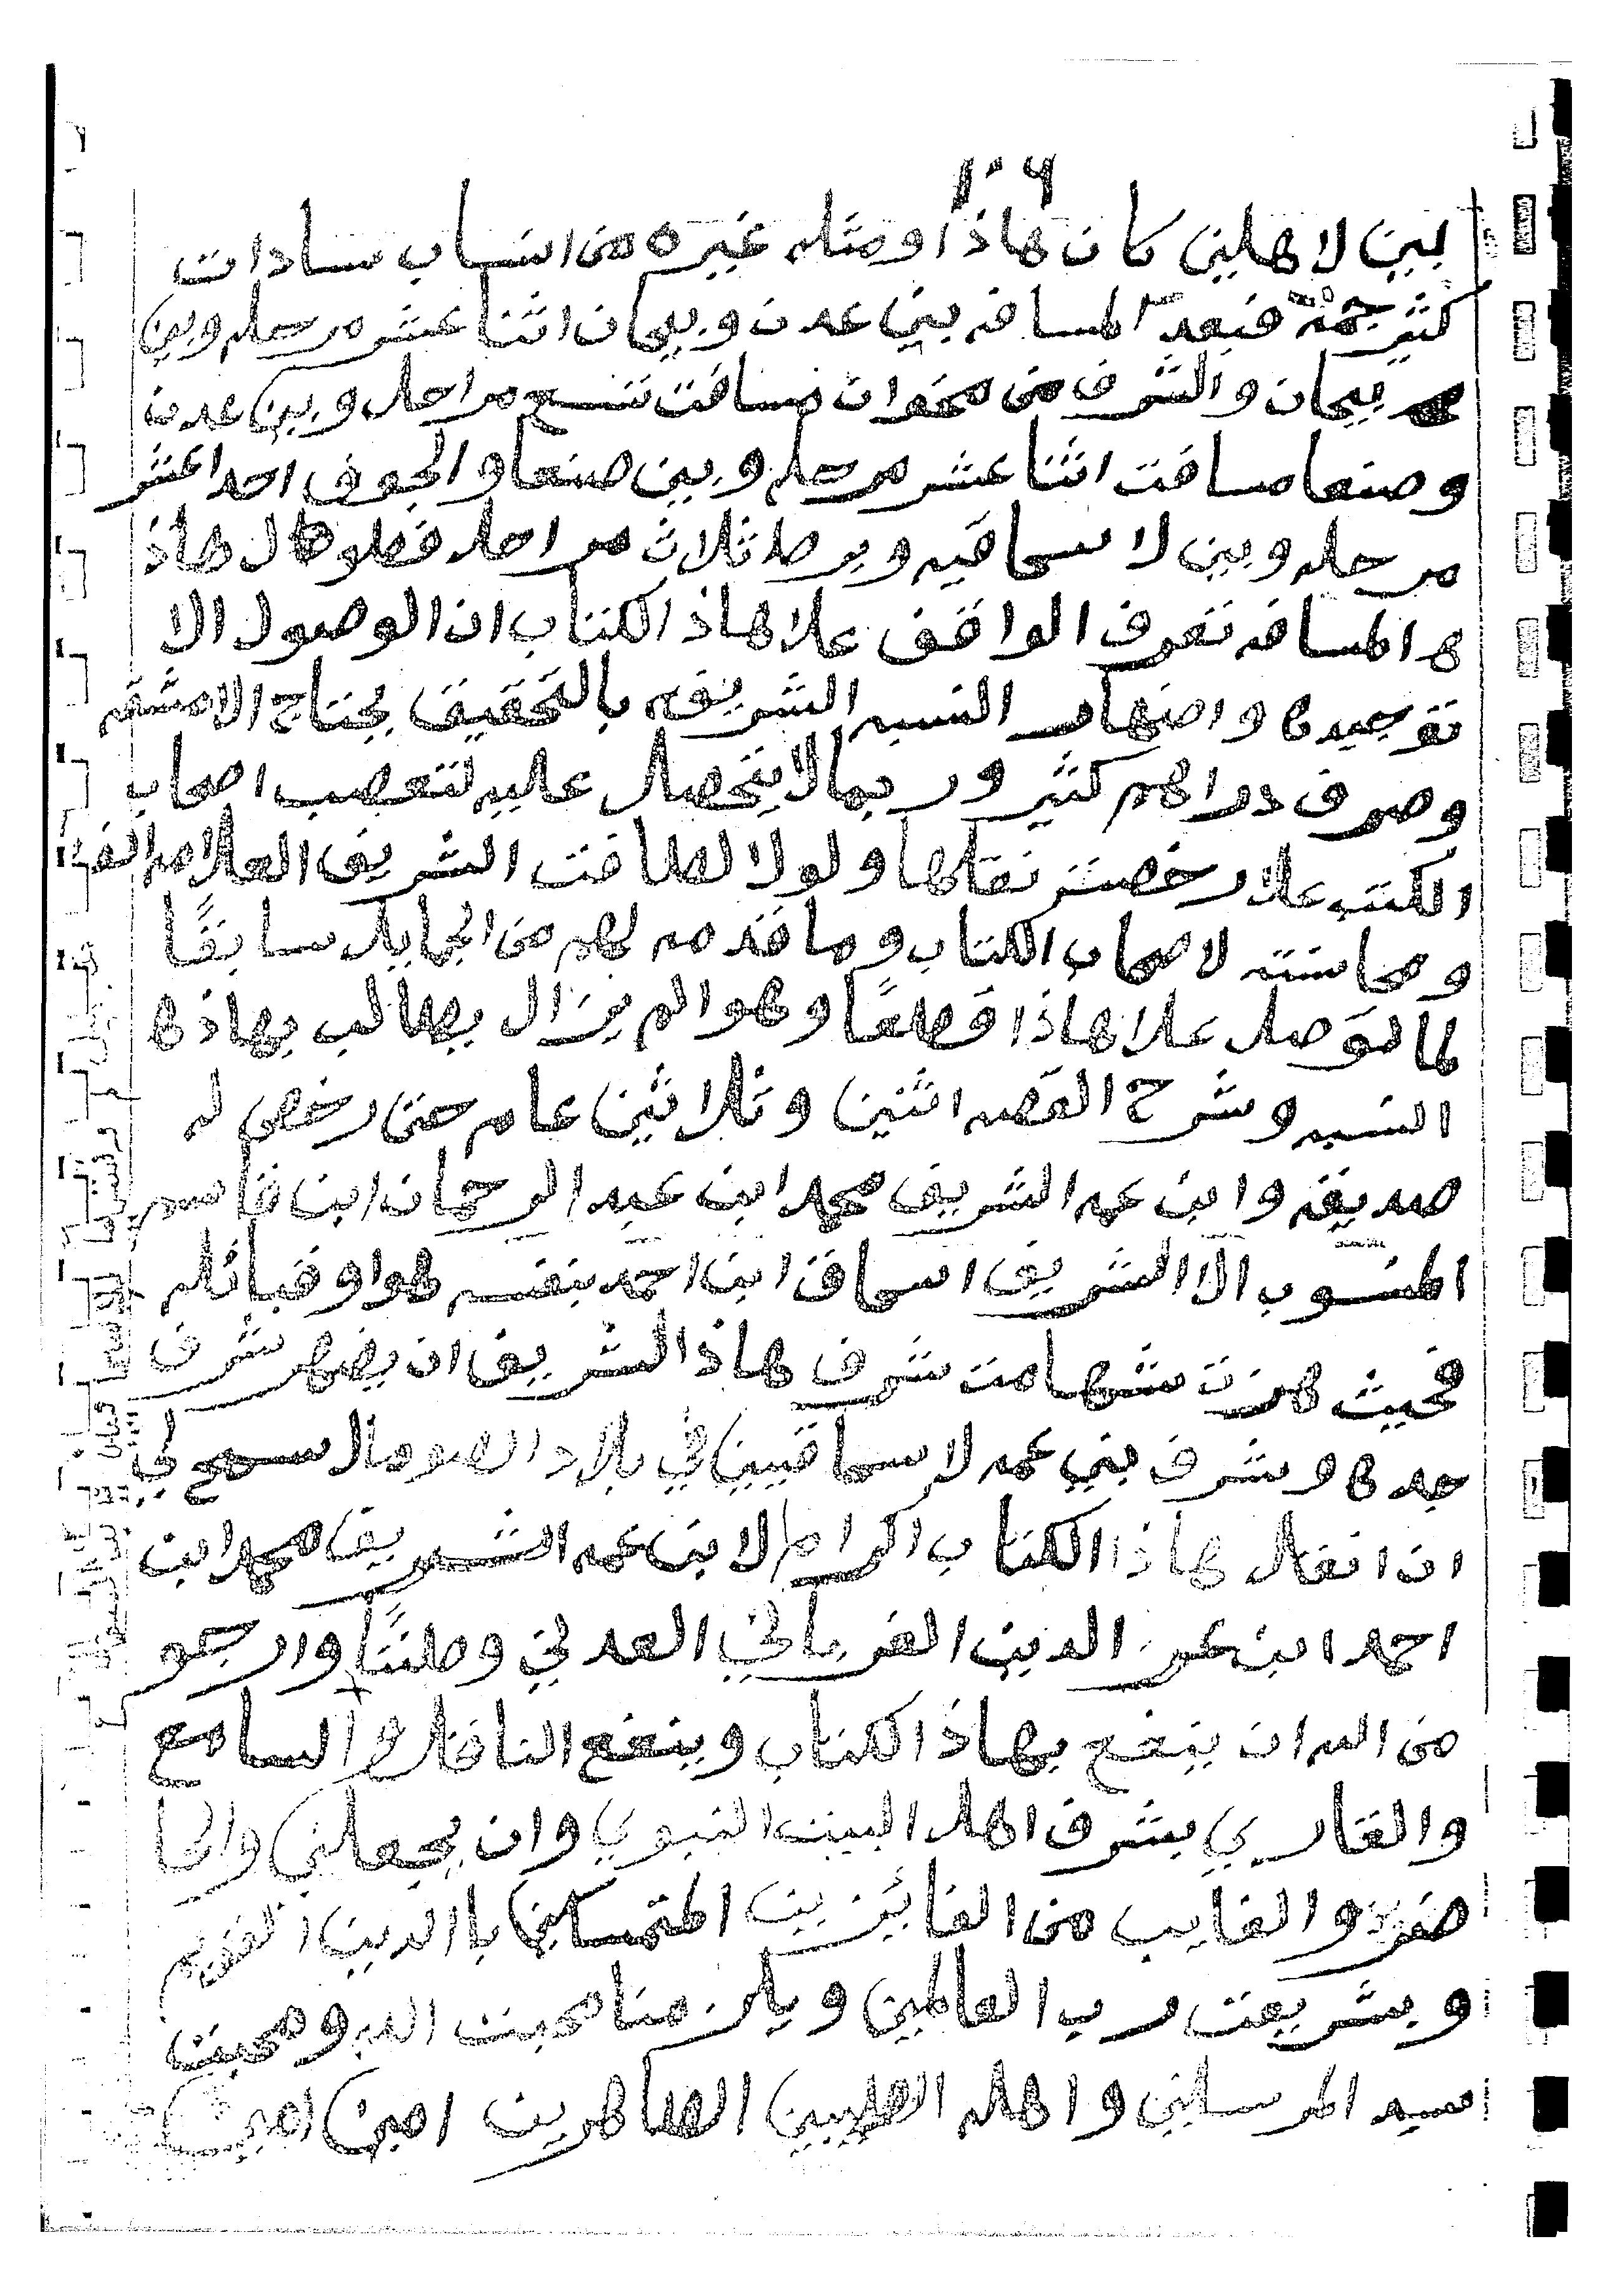 ١٠٦
بين لاهلين كان هاذا ومثله غيره من انساب سادات
كثير جمه فبعد المسافه بين عدن وبيحان اثنا عشر مرحله وبين
بيحان والشرف من مسافت تسع مراحل وبين عدن
وصنعا مسافت اثنا عشر مرحله وبين صنعا والجوف احدا عشر
مرحله وبين لاسحاقيه وبرط ثلاث مراحل فطول هاذ
ه المسافه تعرف الواقف علا هاذ الكتاب ان الوصول الا
توجيدها واضهار النسبه الشريفه بالتحقيق يحتاج الا مشقه
وصرف دراهم كثير وربما لا يتحصل عليه لتعصب اصحاب
الكتب علا رخصت نقلها ولولا لطافت الشريف العلامه
ومحاسنته لاصحاب الكتاب وما قدمه لهم من الجمايل سابقًا
لما توصل علا هاذا قطعًا وهوا لم يزال يطالب بهاذه
النسبه وشرح القصه اثنين وثلاثين عام حتى رخص له
صديقه وابن عمه الشريف محمد ابن عبد الرحمان ابن قاسم
المنسوب الا الشريف اسحاق ابن احمد بنفسه هوا وقبائله
فحيث هزت شهامت شرف هاذا الشريف ان يضهر شرف
جدها وشرف بني عمه لاسحاقيين في بلاد الصومال سمح لي
ان انقل هاذا الكتاب اكرام لابن عمه الشريف محمد ابن
احمد ابن الدين العدني وطنًا وارجو
من الله ان ينفع بهاذ الكتاب وينفع الناقل والسامع
والقاري بشرف اهل البيت النبوي وان يجعلني والحا
ضر والغايب من الفائزين المتمسكين باالدين القويم
وبشريعت رب العالمين ويلزمنا محبت الله ومحبت
سيد المرسلين واهله الطيبين الطاهرين امين امين